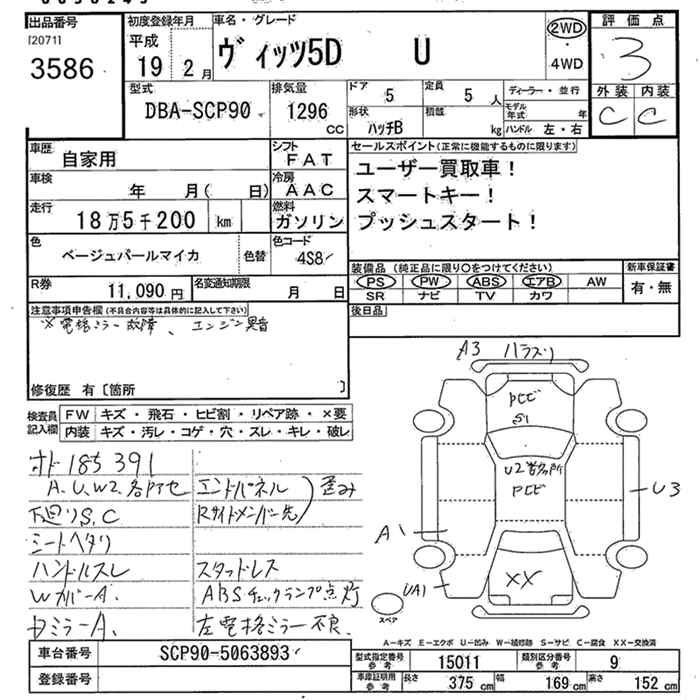 出品番号
I20711
3586
初度登録年月
平成
19 年 2 月
車名・グレード
ヴィッツ5D U
2WD
・
4WD
評価点
3
外装 内装
C C
型式
DBA-SCP90
排気量
1296
CC
ドア
5
定員
5 人
形状
ハッチB
積載
kg
ディーラー・並行
モデル年式 年
ハンドル 左・右
車歴
自家用
シフト
FAT
車検
年 月( 日)
冷房
AAC
走行
18万5千200 km
燃料
ガソリン
色
ベージュパールマイカ
色替
色コード
4S8
R券
11,090 円
名変通知期限
月 日
セールスポイント(正常に機能するものに限ります)
ユーザー買取車!
スマートキー!
プッシュスタート!
装備品(純正品に限り○をつけてください)
新車保証書
PS PW ABS エアB AW
SR ナビ TV カワ
有・無
後日品
注意事項申告欄(不具合内容等は具体的に記入して下さい)
※電格ミラー故障、エンジン異音
修復歴 有〔箇所 〕
検査員記入欄
FW キズ・飛石・ヒビ割・リペア跡・×要
内装 キズ・汚レ・コゲ・穴・スレ・キレ・破レ
オド185391
A.U.W2.各所セ
下廻りS.C
シートヘタリ
ハンドルスレ
WカバーA.
DミラーA.
エンドパネル
Rサイドメンバー先
歪み
スタッドレス
ABSチェックランプ点灯
左電格ミラー不良.
A3 ハラスリ
PCビ
S1
U2若多所
PCビ
U3
A1
UA1
XX
スペア
A-キズ E-エクボ U-凹み W-補修跡 S-サビ C-腐食 XX-交換済
車台番号
SCP90-5063893
登録番号
型式指定番号
参考
15011
類別区分番号
参考
9
車庫証明用
参考
長さ
375 cm
幅
169 cm
高さ
152 cm